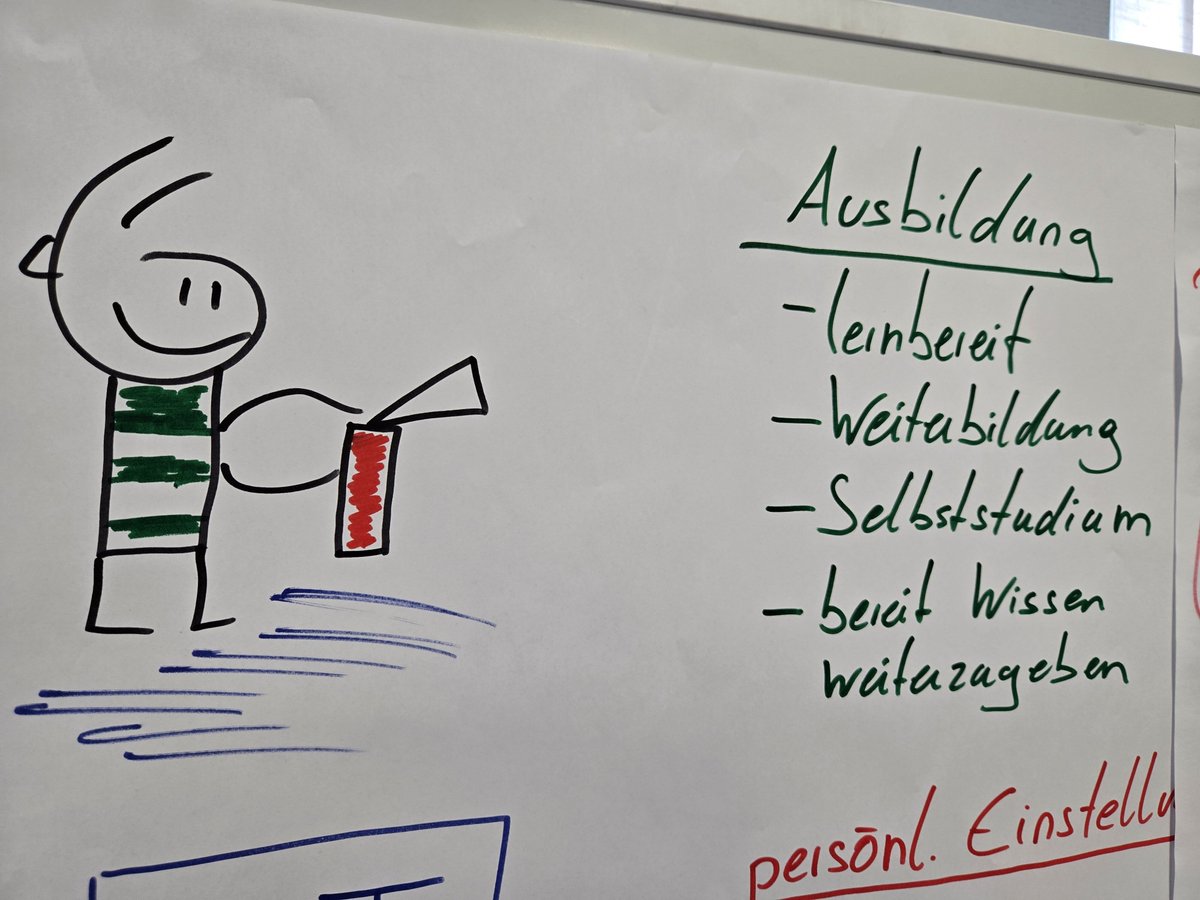 Ausbildung
- lernbereit
- Weiterbildung
- Selbststudium
- bereit Wissen
weiterzugeben
persönl. Einstellu